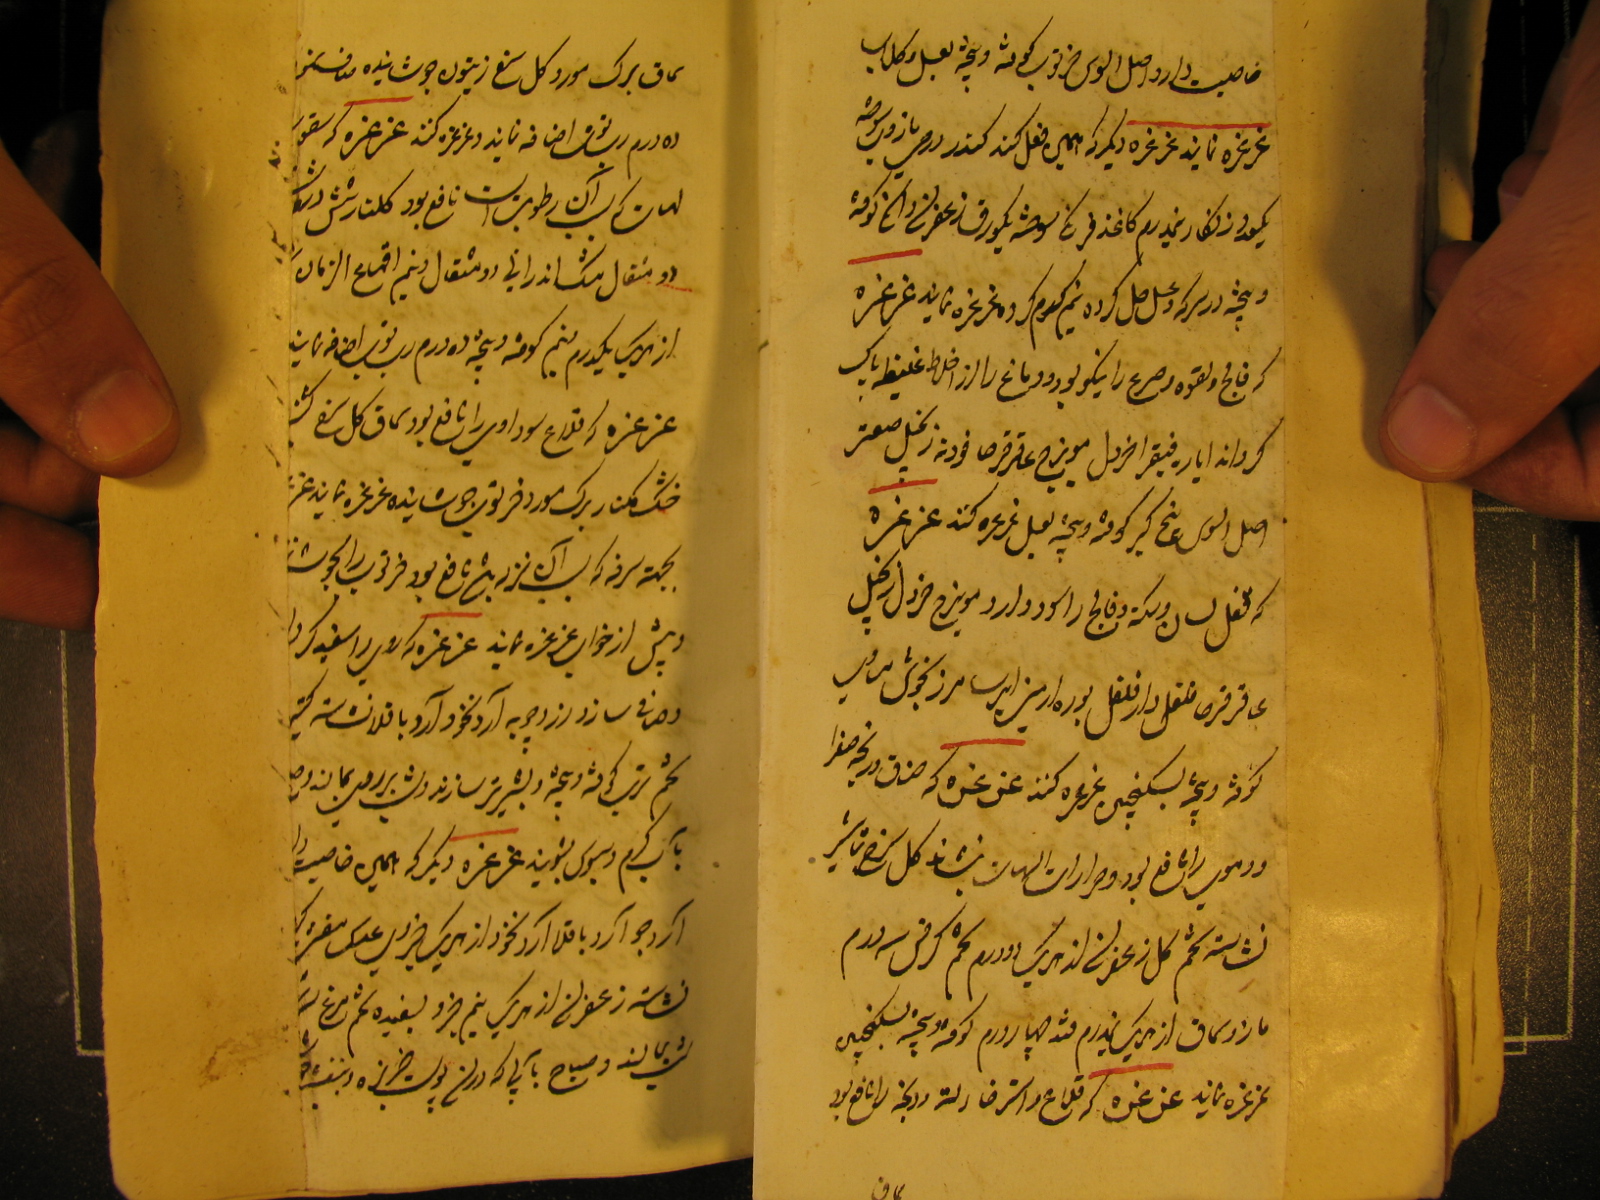 خاصیت دارد اصل السوس خرتوب کوفته و بیخته بعسل و کلاب
غرغره نمایند غرغره دیگر که همین فعل کند کندر درمی مازوی سوخته
یکدرم زنکار نیمدرم کاغذ فرنکی سوخته یکدرم زعفران دانکی کوفته
و بیخته در سرکه و عسل حل کرده نیم کرم کرده غرغره نمایند غرغره
که فالج و لقوه و صرع را نیکو بود و دماغ را از اخلاط غلیظه پاک
کرداند ایارج فیقرا خردل مویزج عاقرقرحا فودنه زنجبیل صعتر
اصل السوس بیخ کبر کوفته و بیخته بعسل غرغره کند غرغره
که ثقل لسان و سکته و فالج را سود دارد مویزج خردل زنجبیل
عاقرقرحا فلفل دارفلفل بوره ارمنی ایرسا مرزنجوش
کوفته و بیخته بسکنجبین غرغره کنند غرغره که خناق و ذبحه صفرا
و دموی را نافع بود و حرارات لهات بنشاند کل سرخ تباشیر
نشاسته تخم کل زعفران از هر یک دو درم تخم کرفس سه درم
مازو سماق از هر یک نیمدرم چهار درم کوفته و بیخته بسکنجبین
غرغره نمایند غرغره که قلاع و استرخا و ذبحه را نافع بود
سماق
سماق برک مورد کل سرخ زیتون جوشانیده صاف نموده
ده درم رب توت اضافه نمایند و غرغره کنند غرغره که سقوط
لهات که سبب آن رطوبت است نافع بود کلنار شش درم
دو مثقال نمک اندرانی دو مثقال و نیم اقماع الرمان
از هر یک یکدرم و نیم کوفته و بیخته ده درم رب توت اضافه نمایند
غرغره که قلاع سوداوی را نافع بود سماق کل سرخ
خشک کلنار برک مورد خرتوب جوشانیده غرغره نمایند غرغره
بجهته سرفه که سبب آن نزله باشد نافع بود خرتوب را بجوشانند
و پیش از خواب غرغره نمایند غرغره که روی را سفید کرداند
و صافی سازد زردچوبه آرد نخود آرد باقلا نشاسته کتیرا
تخم ترب کوفته و بیخته و بشیر تر سازند و شب بر روی بمالند و صباح
بآب کرم و سبوس بشویند غرغره دیگر که همین خاصیت دارد
آرد جو آرد باقلا آرد نخود از هر یک جزوی عدس مقشر
نشاسته زعفران از هر یک نیم جزو بسفیده تخم مرغ
شب بمالند و صباح بآبی که در آن پوست خربزه و بنفشه